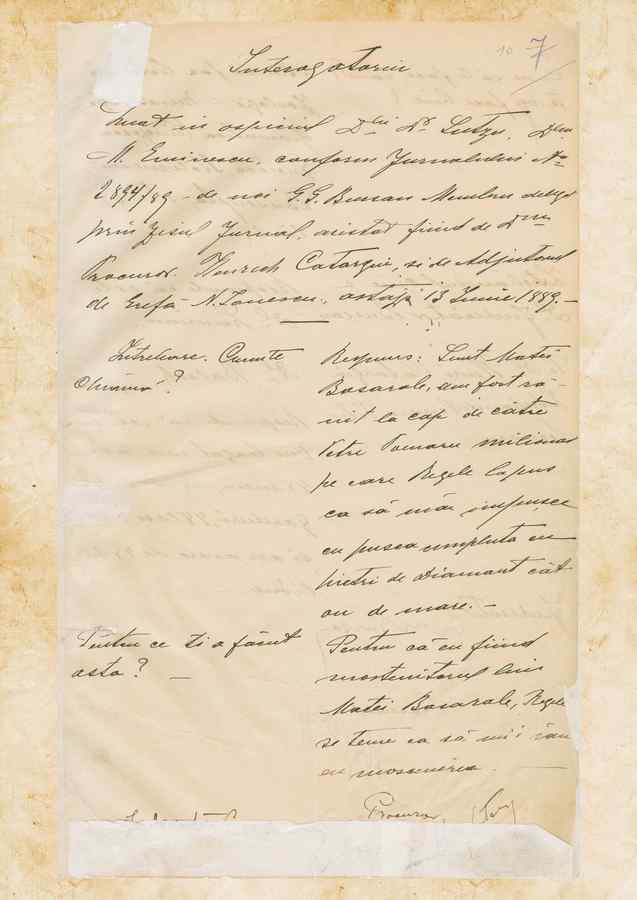 10 7
Interogatoriu
Luat in ospiciul Dlui Dr Sutzu, Dlui
M. Eminescu, conform Jurnalului No
2894/89 - de noi G.G. Bursan Membru delegat
prin zisul Jurnal, asistat fiind de Dnu
Procuror Henrich Catargiu, si de Adjutorul
de Grefă N. Ionescu, astazi 13 Iunie 1889.-
Intrebare. Cumte
Chiamă?
Respuns: Sunt Matei
Basarab, am fost ră-
nit la cap de către
Petre Poenaru milionar
pe care Regele la pus
ca să mă impusce
cu pusca umpluta cu
pietri de diamant cât
ou de mare. -
Pentru ce ti a făcut
asta? -
Pentru că eu fiind
mostenitorul lui
Matei Basarab, Regele
se teme ca să nu i iau
eu mostenirea. -
Procuror,